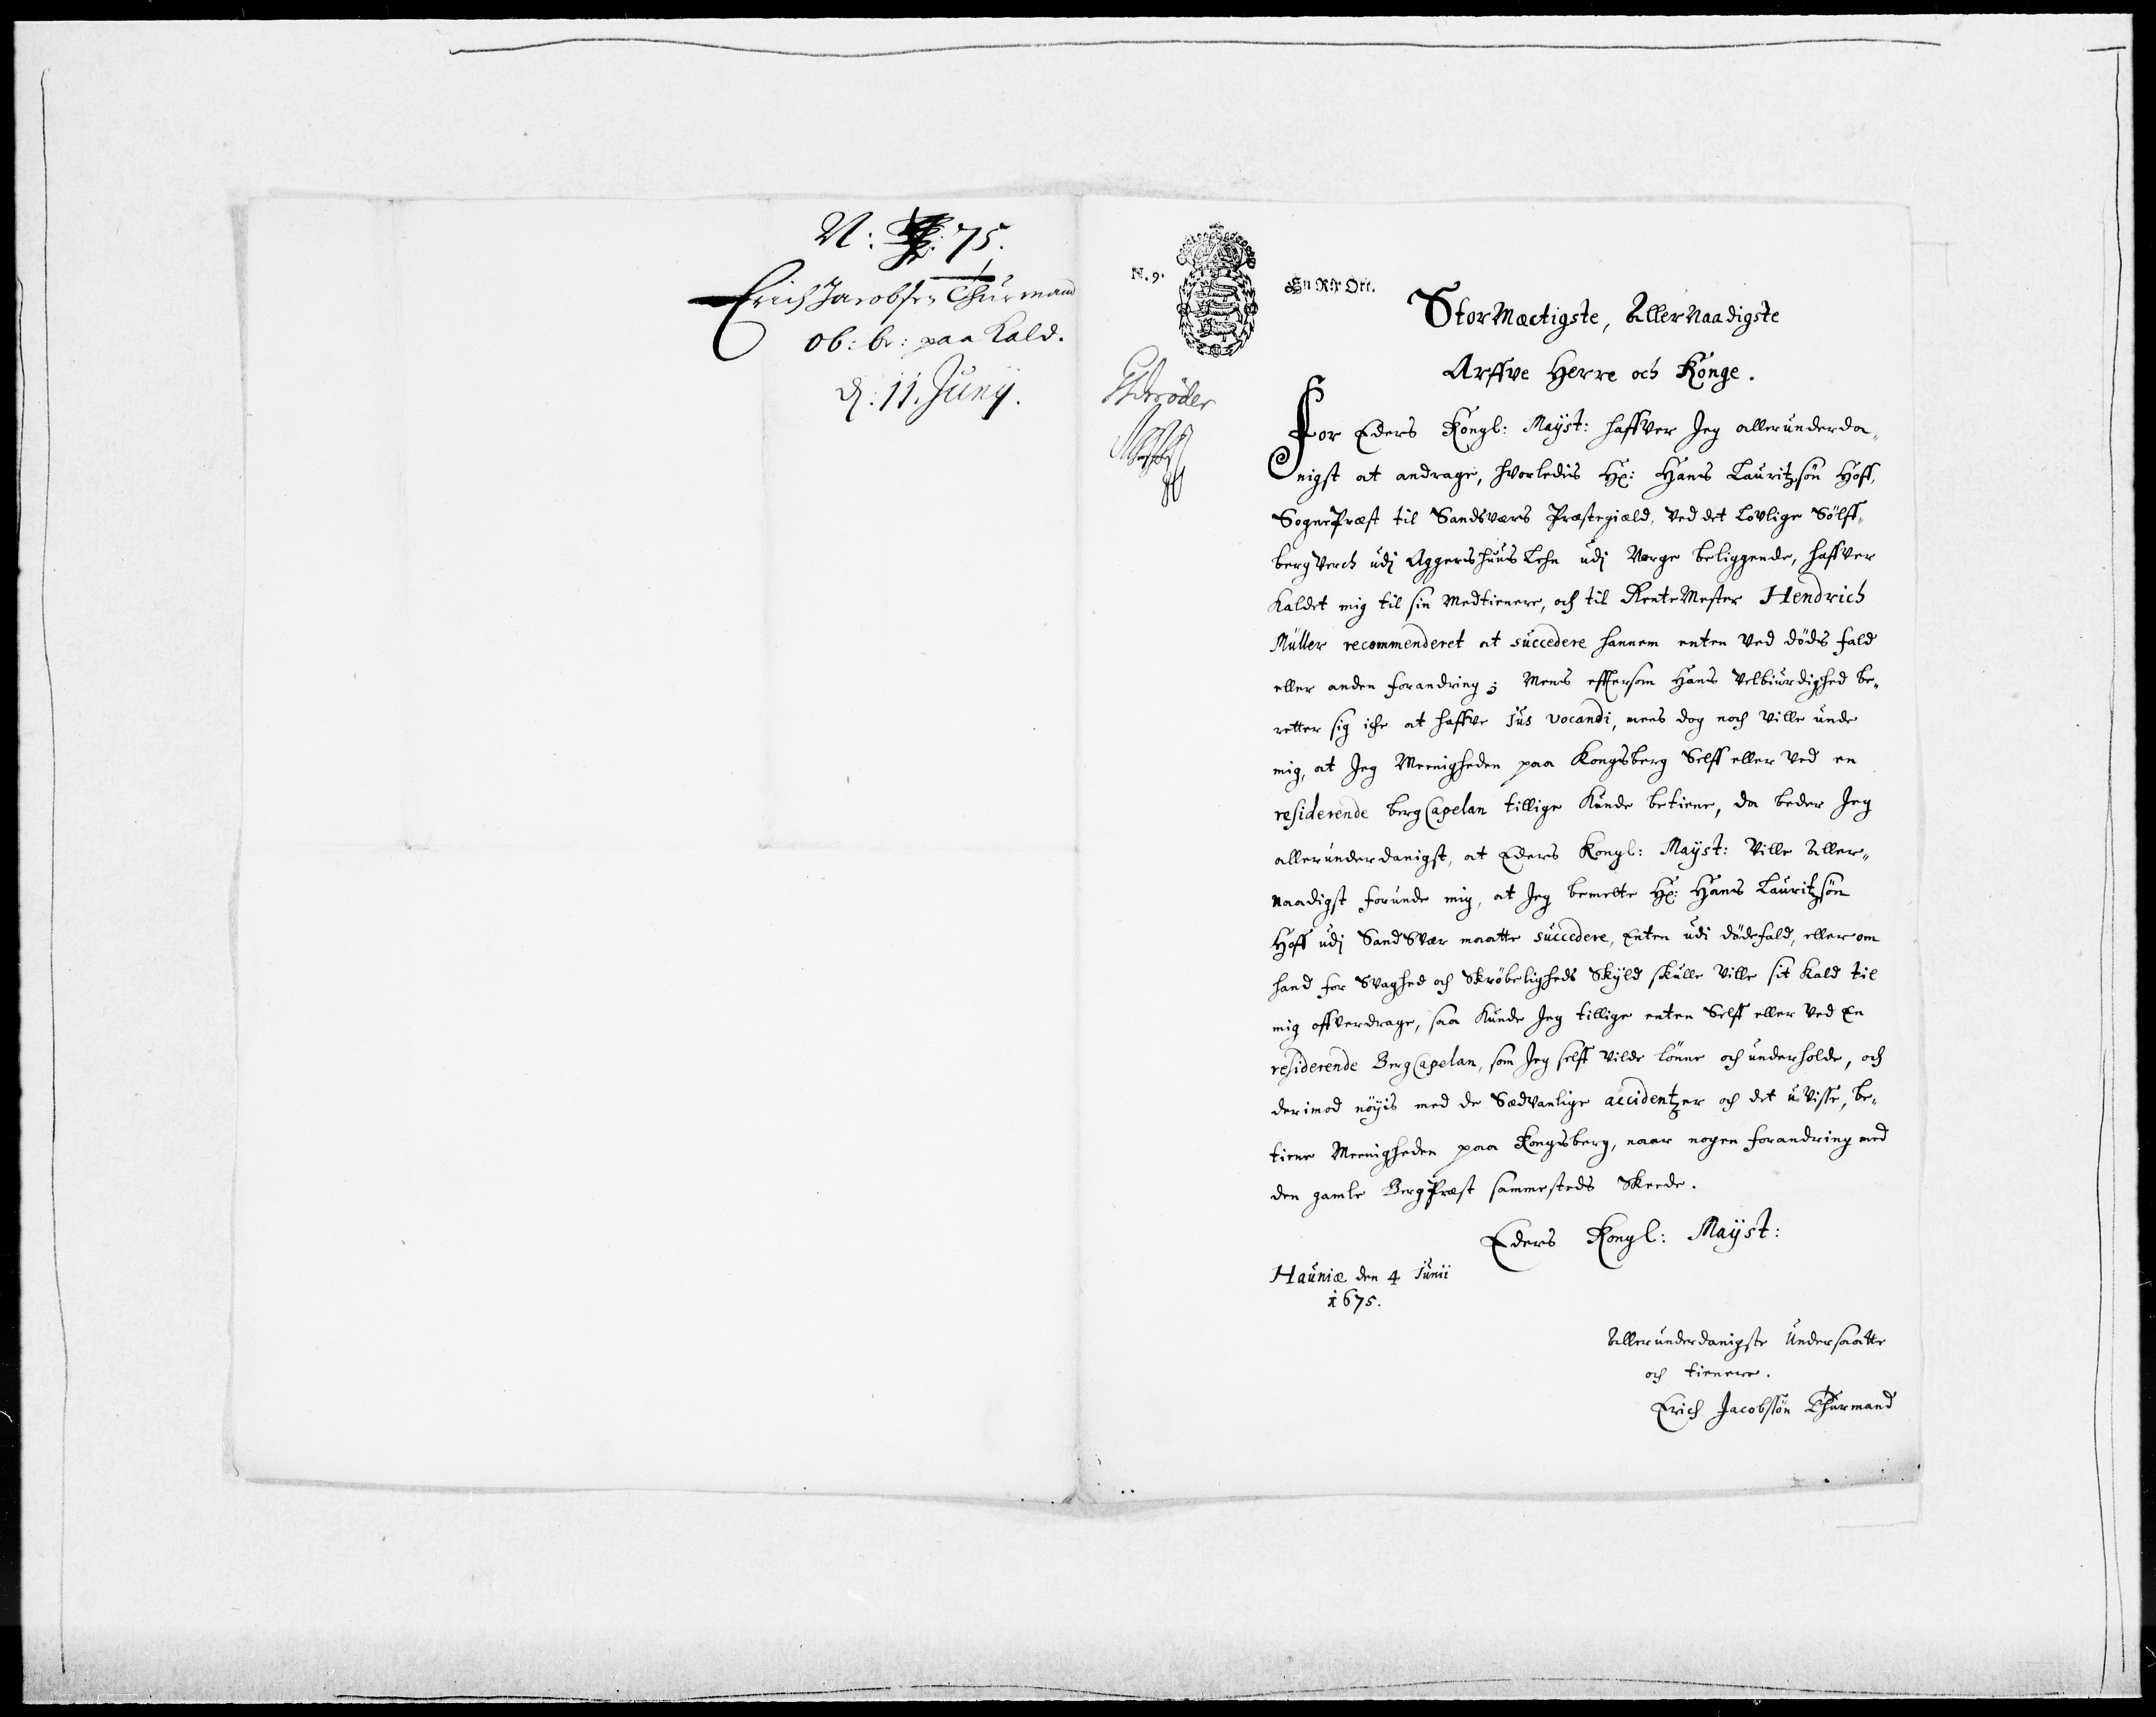 N: 75.
Erich Jacobsen Thurmand
ob: br: paa Kald.
d: 11. Junÿ.
N. 9.
En Rix Ort.
StorMæctigste, AllerNaadigste
Arffve Herre och Konge.
For Eders Kongl: Mayst: haffver Jeg allerunderda„
nigst at andrage, hvorledis Hr: Hans Lauritzsøn Hoff,
SognePræst til Sandsværs Præstegiæld, ved det Lovlige Sølff„
bergverch udj Aggershuus Lehn udj Norge beliggende, haffver
Kaldet mig til sin Medtienere, och til RenteMester Hendrich
Müller recommenderet at succedere hannem enten ved døds fald
eller anden forandring; Mens effterson Hans Velbiurdighed be„
retter sig iche at haffve Jus vocandi, mens dog noch ville unde
mig, at Jeg Meenigheden paa Kongsberg Selff eller ved en
residerende bergCapelan tillige Kunde betiene, da beder Jeg
allerunderdanigst, at Eders Kongl: Mayst: Ville Aller„
naadigst forunde mig, at Jeg bemelte Hr: Hans Lauritzsøn
Hoff udj SandSvær maatte succedere, Enten udi dødsfald, eller om
hand for Svaghed och Skrøbeligheds Skyld skulle ville sit Kald til
mig offverdrage, saa Kunde Jeg tillige enten Selff eller ved En
residerende BergCapelan, som Jeg selff vilde lønne och underholde, och
derimod nøyis med de Sædvanlige accidentzer och det uvisse, be„
tiene Meenigheden paa Kongsberg, naar nogen forandring med
den gamle BergPræst sammesteds Skeede.
Eders Kongl: Mayst:
Hauniæ den 4 Junii
1675.
Allerunderdanigste Undersaatte
och tienere.
Erich Jacobssøn Thurmand